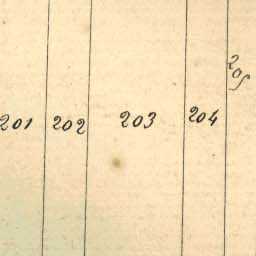 201 202 203 204 205